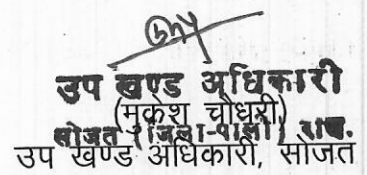 उप खण्ड अधिकारी
(मुकेश चौधरी)
सोजत (जिला-पाली) राज.
उप खण्ड अधिकारी, सोजत